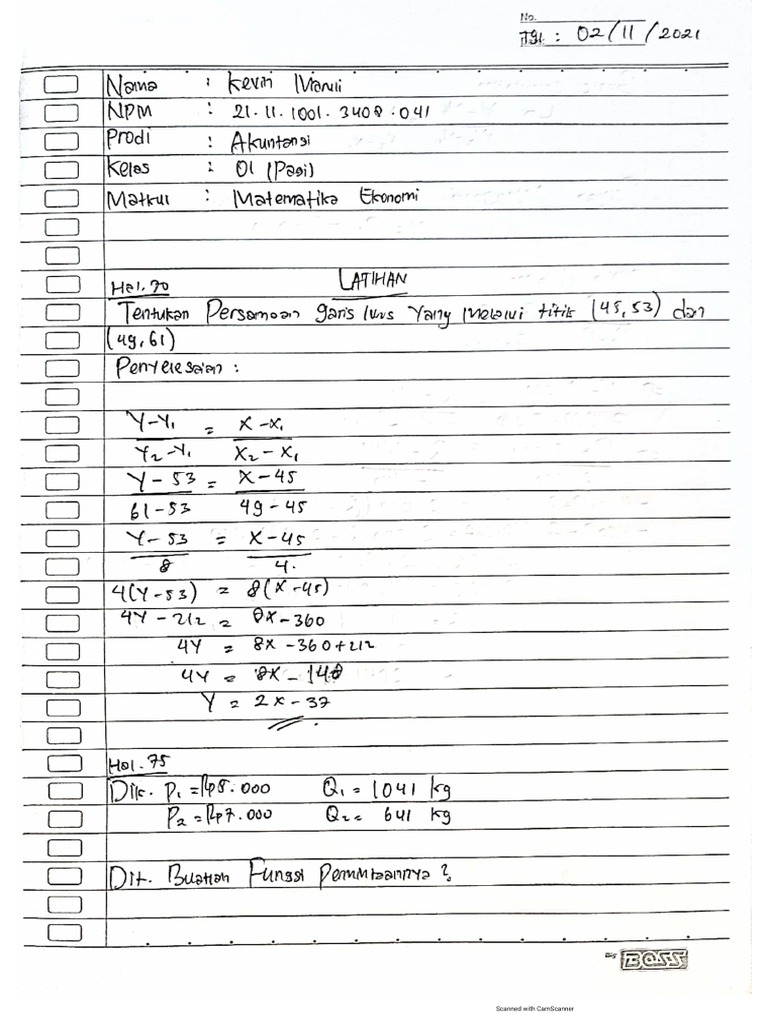 No.
Tgl : 02/11/2021
Nama : Kevin Maruli
NPM : 21.11.1001.3408.041
Prodi : Akuntansi
Kelas : 01 (Pagi)
Matkul : Matematika Ekonomi
Hal.70 LATIHAN
Tentukan Persamaan garis lurus yang melalui titik (45,53) dan
(49,61)
Penyelesaian :
Y-Y₁ = X-X₁
Y₂-Y₁ X₂-X₁
Y-53 = X-45
61-53 49-45
Y-53 = X-45
8 4.
4(Y-53) = 8(X-45)
4Y-212 = 8X-360
4Y = 8X-360+212
4Y = 8X-148
Y = 2X-37
Hal.75
Dik. P₁ = Rp5.000 Q₁ = 1041 kg
P₂ = Rp7.000 Q₂ = 641 kg
Dit. Buatlah Fungsi Permintaannya?
BOSS
Scanned with CamScanner